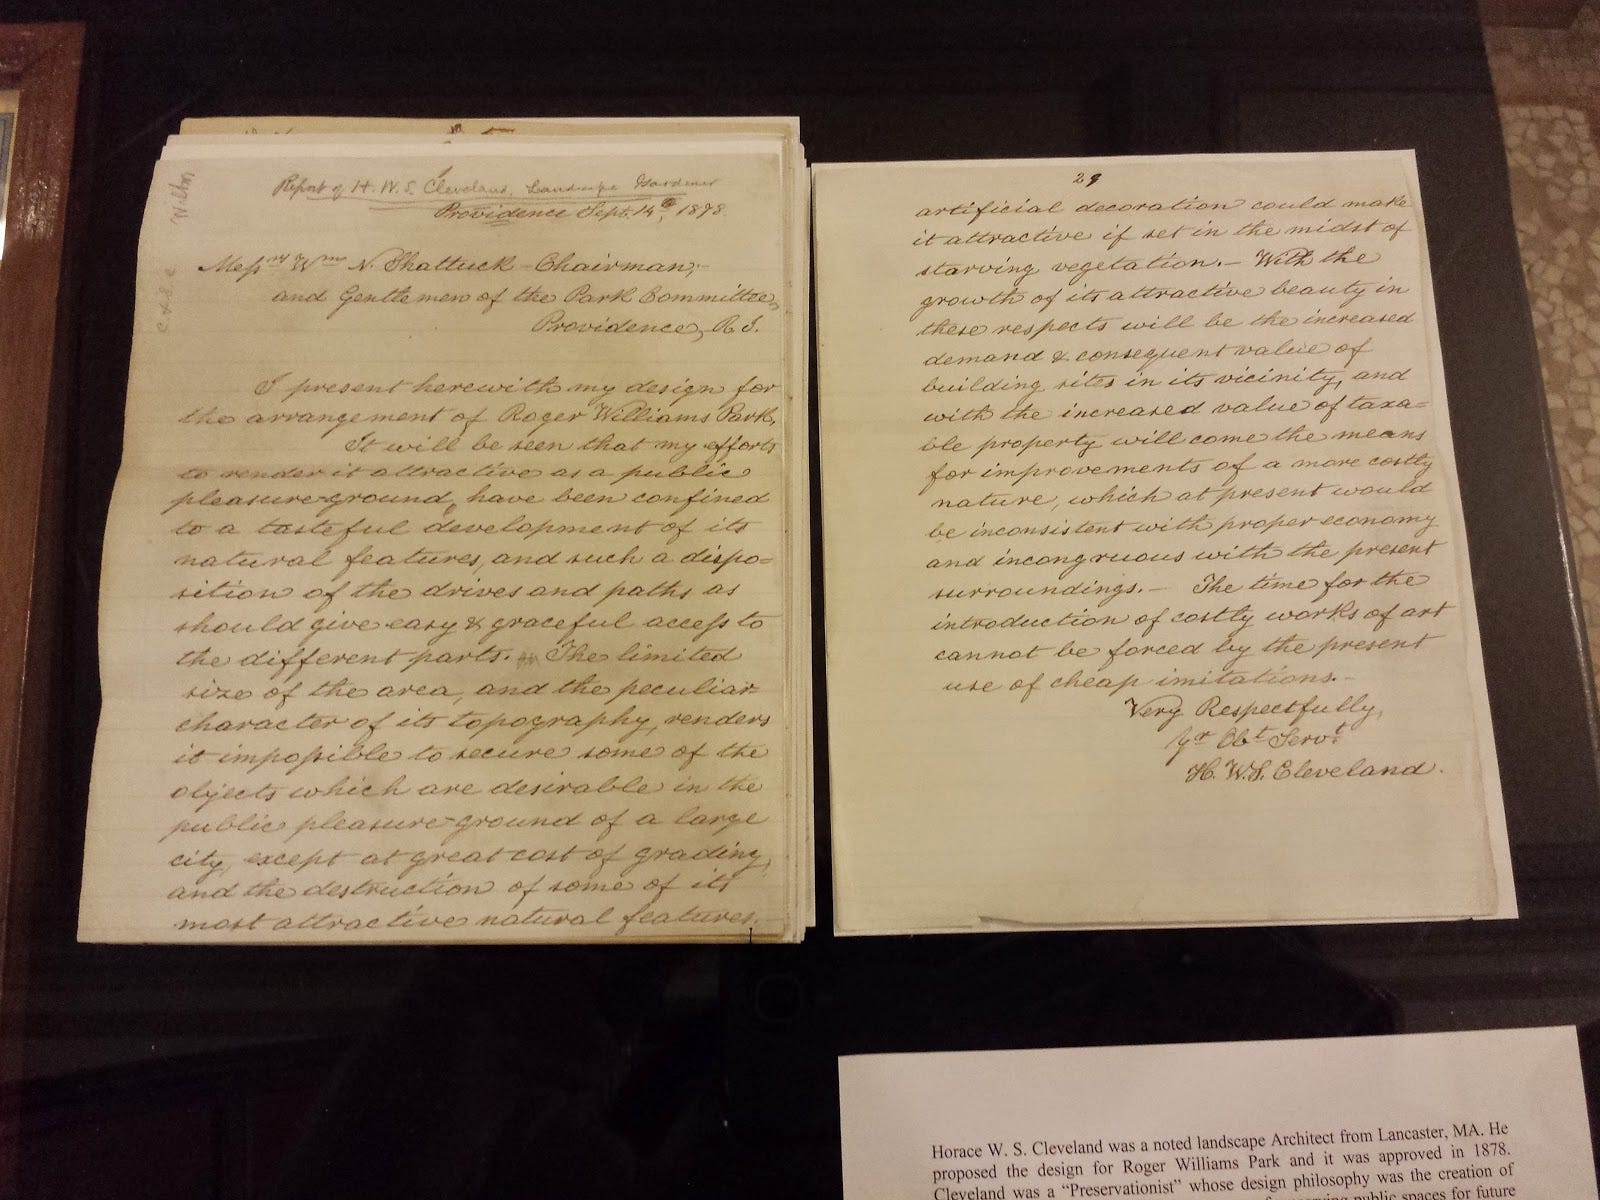 Report of H. W. S. Cleveland, Landscape Gardener
Providence Sept. 14th, 1878.
Messrs Wm N. Shattuck - Chairman,-
and Gentlemen of the Park Committee,
Providence, R.I.
I present herewith my design for
the arrangement of Roger Williams Park.
It will be seen that my efforts
to render it attractive as a public
pleasure-ground, have been confined
to a tasteful development of its
natural features, and such a dispo=
sition of the drives and paths as
should give easy & graceful access to
the different parts. The limited
size of the area, and the peculiar
character of its topography, renders
it impossible to secure some of the
objects which are desirable in the
public pleasure-ground of a large
city, except at great cost of grading,
and the destruction of some of its
most attractive natural features.
29
artificial decoration could make
it attractive if set in the midst of
starving vegetation.- With the
growth of its attractive beauty in
these respects will be the increased
demand & consequent value of
building sites in its vicinity, and
with the increased value of taxa=
ble property will come the means
for improvements of a more costly
nature, which at present would
be inconsistent with proper economy
and incongruous with the present
surroundings.- The time for the
introduction of costly works of art
cannot be forced by the present
use of cheap imitations.-
Very Respectfully,
Yr Obt Servt
H. W. S. Cleveland.
Horace W. S. Cleveland was a noted landscape Architect from Lancaster, MA. He
proposed the design for Roger Williams Park and it was approved in 1878.
Cleveland was a “Preservationist” whose design philosophy was the creation of
public spaces for future